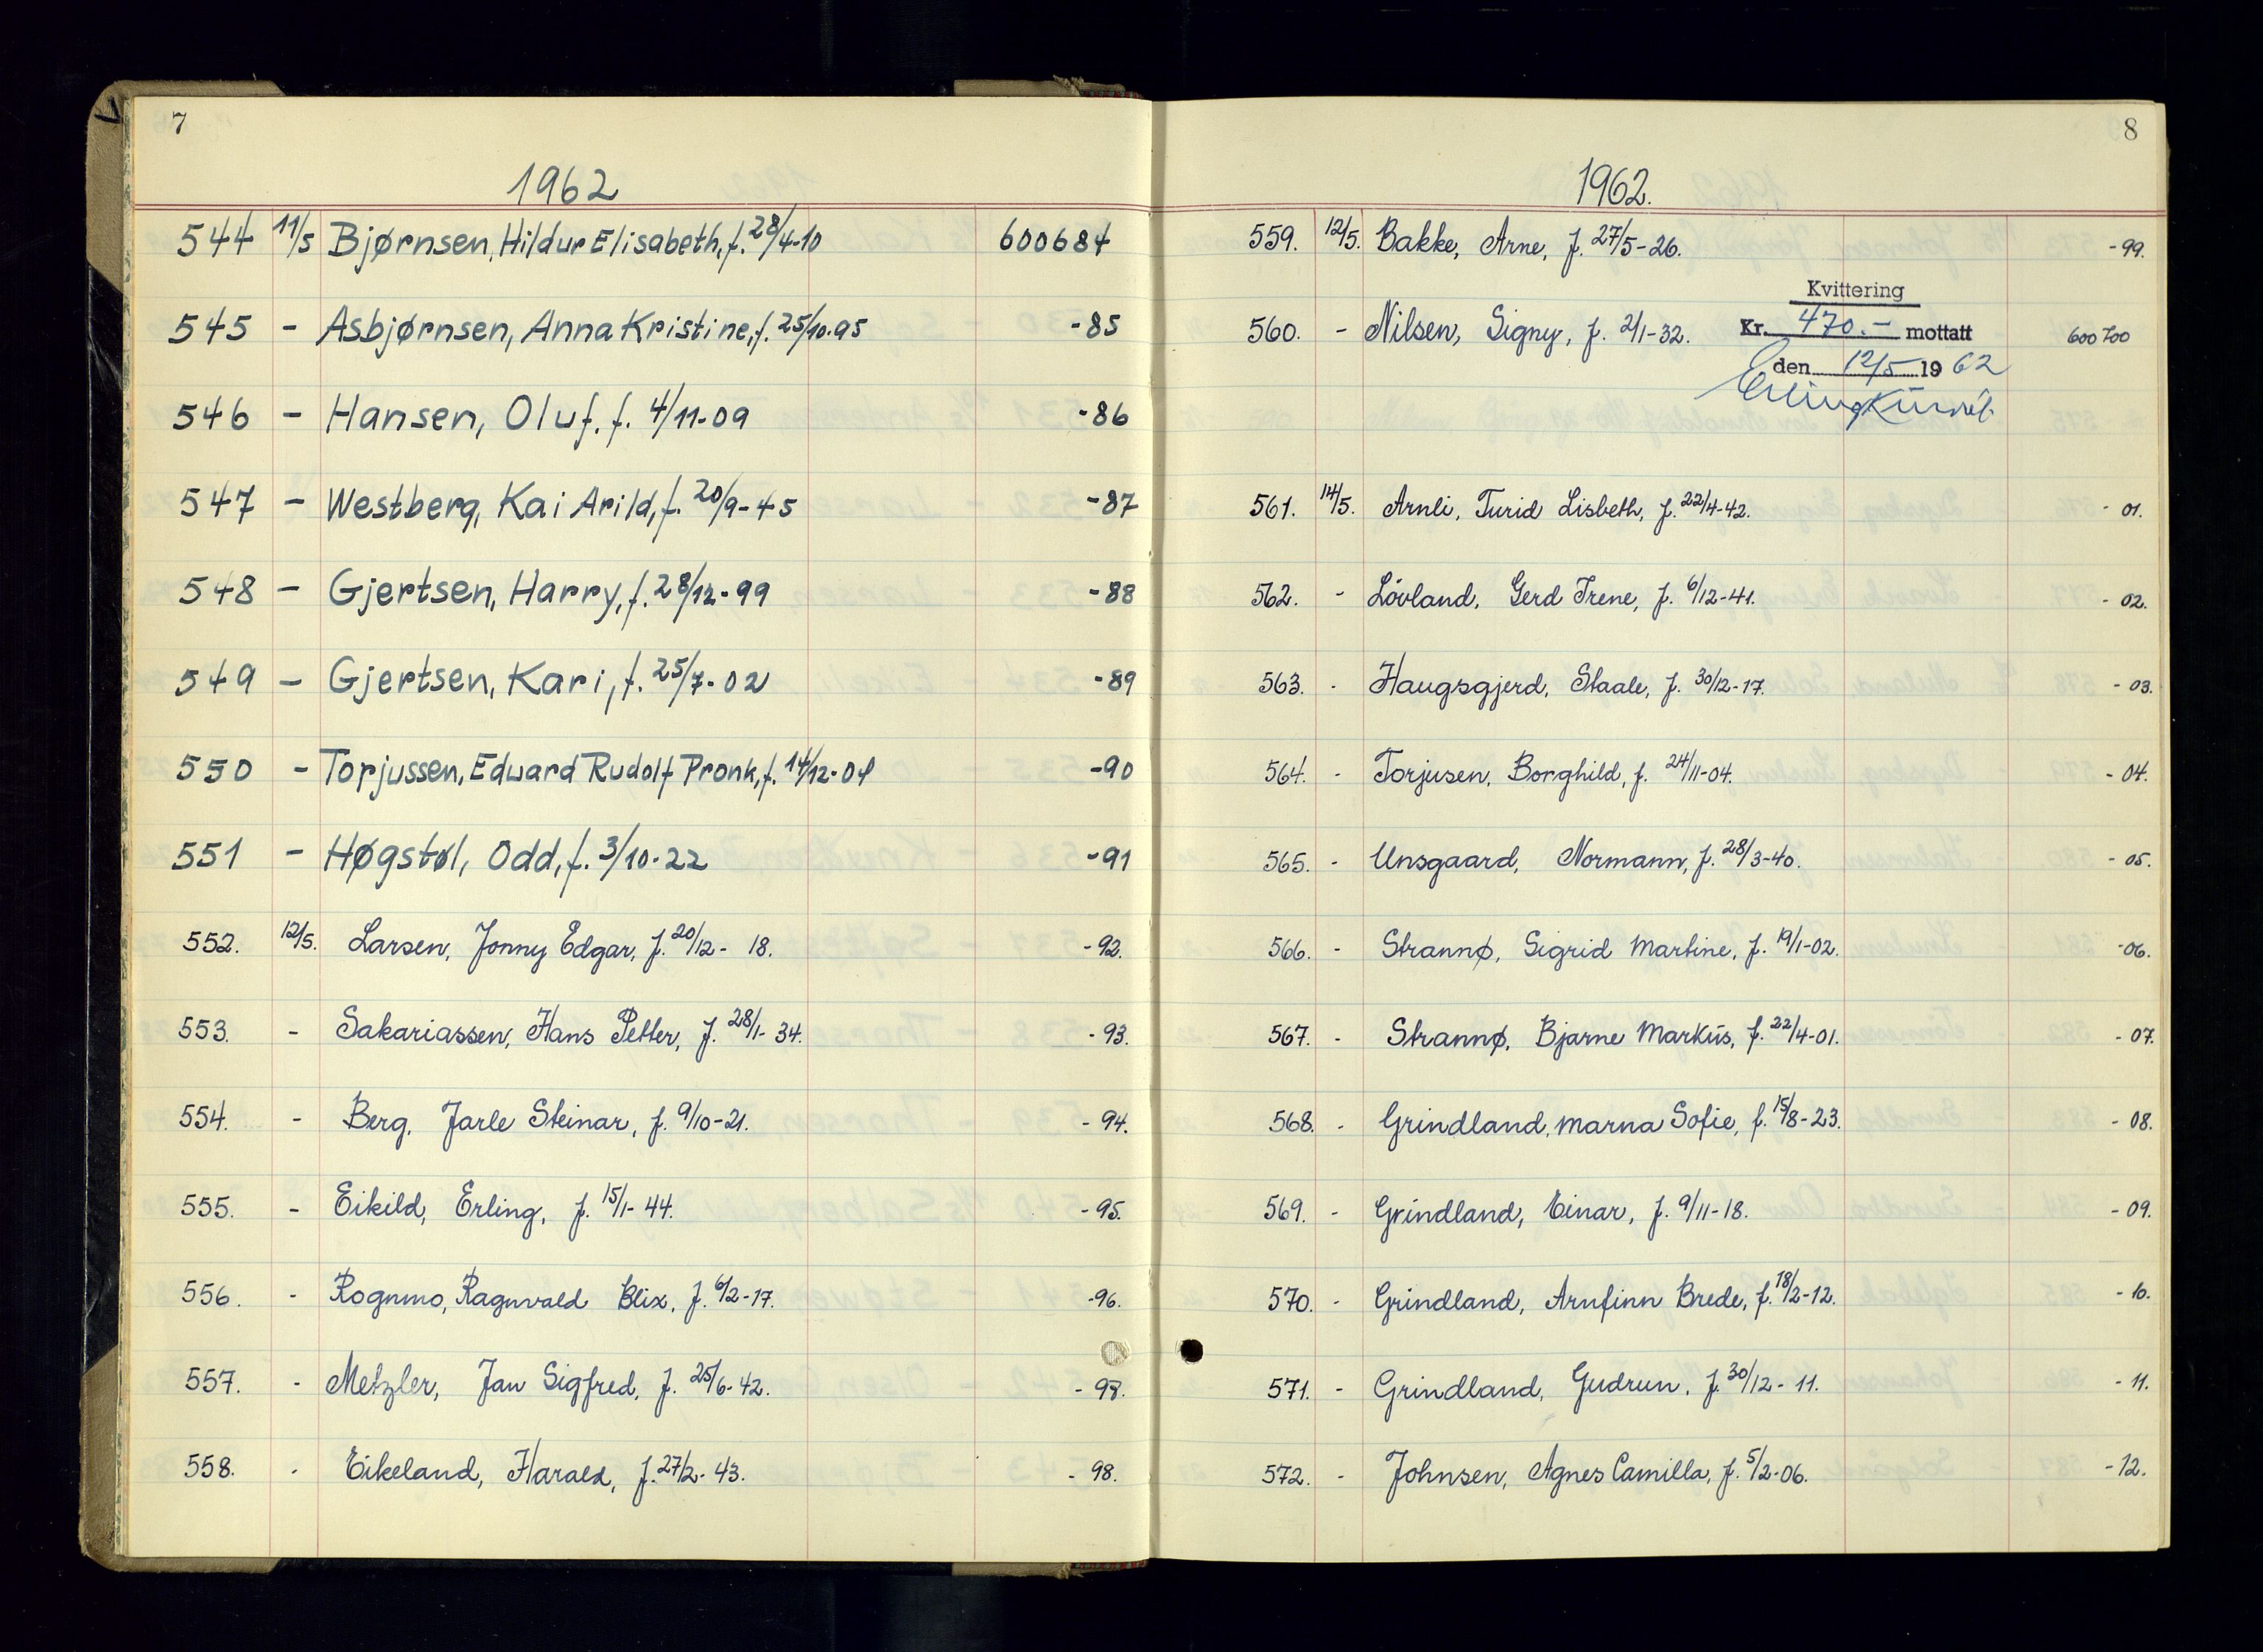 7
1962
544 11/5 Bjørnsen, Hildur Elisabeth, f. 28/4-10 600684
545 - Asbjørnsen, Anna Kristine, f. 25/10-95 -85
546 - Hansen, Oluf, f. 4/11-09 -86
547 - Westberg, Kai Arild, f. 20/9-45 -87
548 - Gjertsen, Harry, f. 28/12-99 -88
549 - Gjertsen, Kari, f. 25/7-02 -89
550 - Torjussen, Edward Rudolf Pronk, f. 14/12-01 -90
551 - Høgstøl, Odd, f. 3/10-22 -91
552. 12/5. Larsen, Jonny Edgar, f. 20/12- 18. -92.
553. - Sakariassen, Hans Petter, f. 28/1- 34. -93.
554. - Berg, Jarle Steinar, f. 9/10-21. -94.
555. - Eikild, Erling, f. 15/1- 44. -95.
556. - Rognmo, Ragnvald Blix, f. 6/2-17. -96.
557. - Metzler, Jan Sigfred, f. 25/6-42. -97.
558. - Eikeland, Harald, f. 27/2- 43. -98.
8
1962.
559. 12/5. Bakke, Arne, f. 27/5-26. -99.
Kvittering
560. - Nilsen, Signy, f. 2/1-32. Kr. 470.- mottatt 600700
den 12/5 1962
Erling
561. 14/5. Arnli, Turid Lisbeth, f. 22/4-42. - 01.
562. - Lövland, Gerd Irene, f. 6/12-41. - 02.
563. - Haugsgjerd, Staale, f. 30/12-17. - 03.
564. - Torjusen, Borghild, f. 24/11-04. - 04.
565. - Unsgaard, Normann, f. 28/3-40. - 05.
566. - Strannø, Sigrid Martine, f. 19/1-02. -06.
567. - Strannø, Bjarne Markus, f. 22/4-01. - 07.
568. - Grindland, Marna Sofie, f. 15/8-23. - 08.
569. - Grindland, Einar, f. 9/11-18. - 09.
570. - Grindland, Arnfinn Brede, f. 18/2-12. - 10.
571. - Grindland, Gudrun, f. 30/12- 11. - 11.
572. - Johnsen, Agnes Camilla, f. 5/2-06. -12.